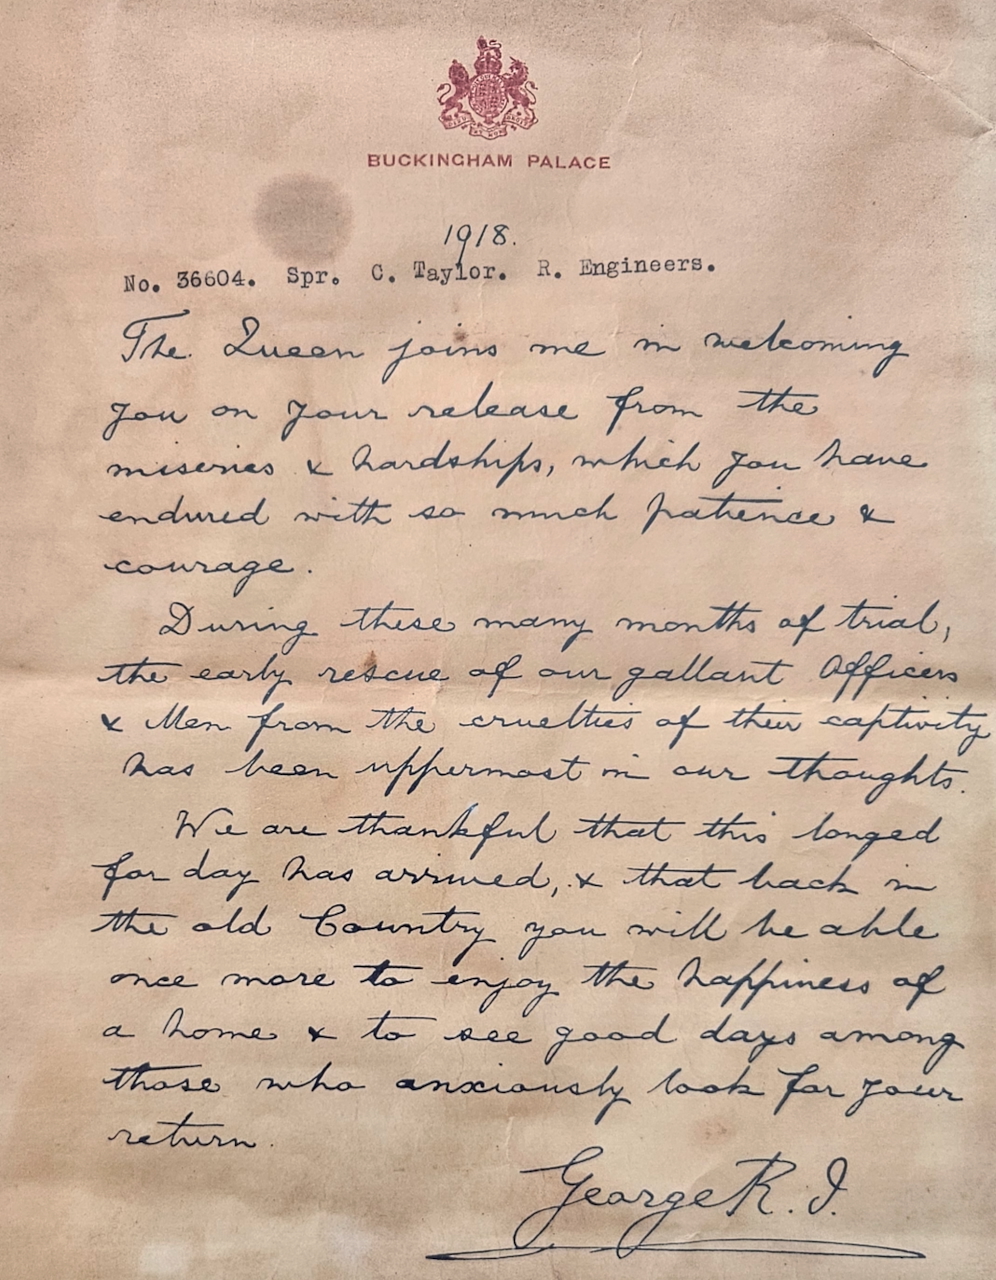 BUCKINGHAM PALACE
1918.
No. 36604. Spr. C. Taylor. R. Engineers.
The Queen joins me in welcoming
you on your release from the
miseries & hardships, which you have
endured with so much patience &
courage.
During these many months of trial,
the early rescue of our gallant Officers
& Men from the cruelties of their captivity
has been uppermost in our thoughts.
We are thankful that this longed
for day has arrived, & that back in
the old Country you will be able
once more to enjoy the happiness of
a home & to see good days among
those who anxiously look for your
return.
George R. I.